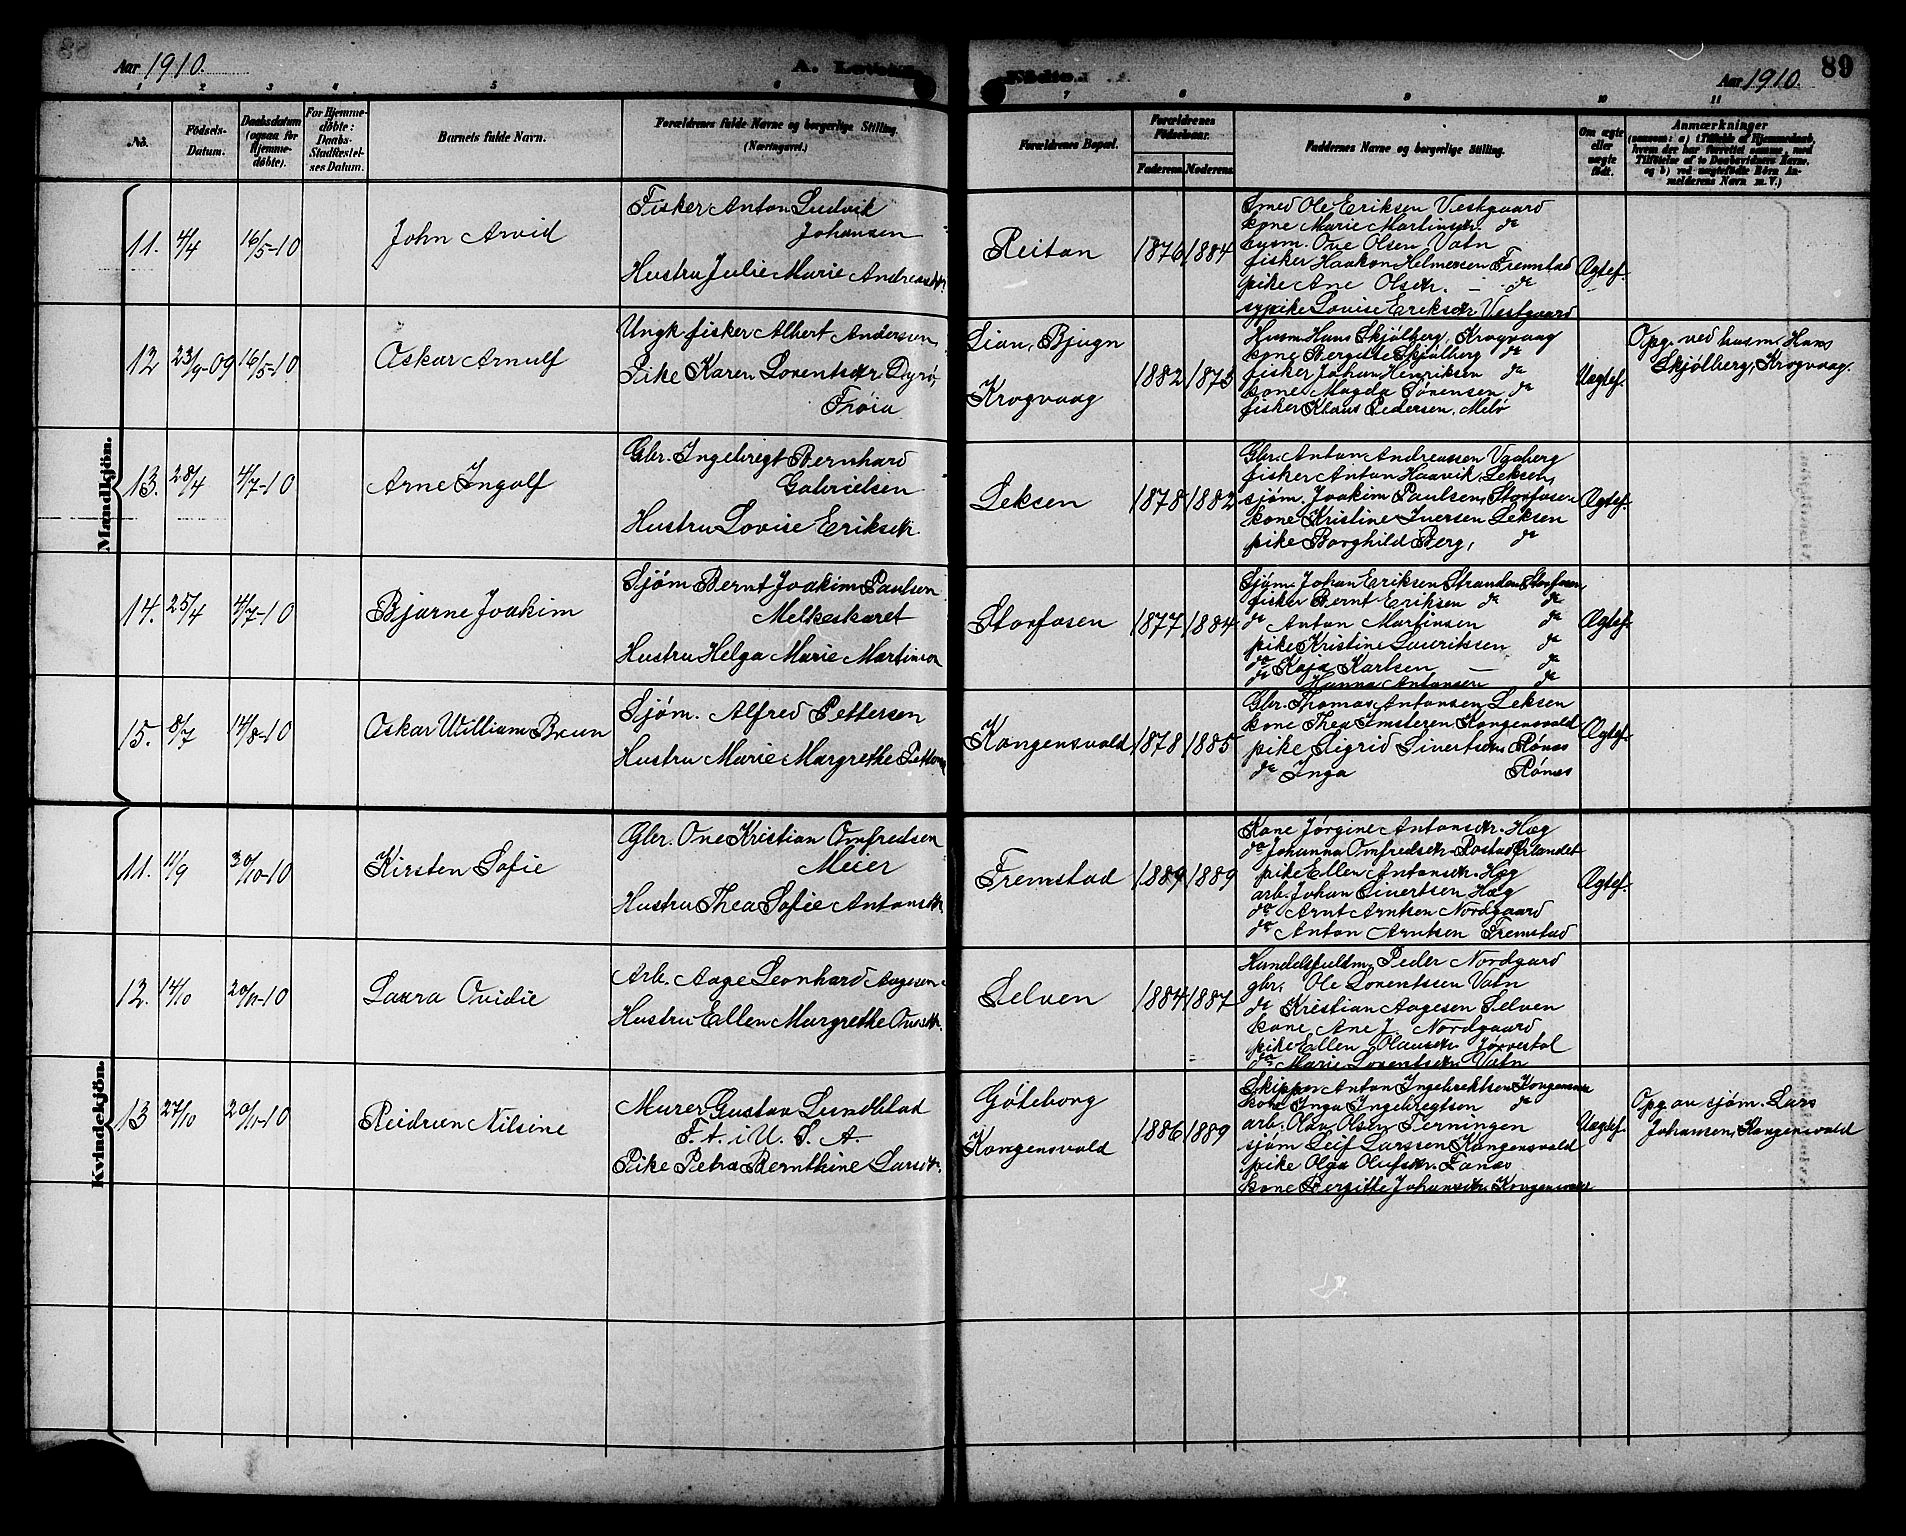 Aar 1910.
A. Levende
Fødte.
Aar 1910.
89
1 2 3 4 5 6 7 8 9 10 11
No.
Fødsels-Datum.
Daabsdatum (ogsaa for Hjemmedøbte).
For Hjemmedøbte: Daabs-Stadfæstelses Datum.
Barnets fulde Navn.
Forældrenes fulde Navne og borgerlige Stilling. (Næringsvei.)
Forældrenes Bopæl.
Forældrenes Fødselsaar.
Faderens Moderens
Faddernes Navne og borgerlige Stilling.
Om ægte eller uægte født.
Anmærkninger
Mandkjön.
11. 4/4 16/5-10
John Arvid
Fisker Anton Ludvik
Johansen
Hustru Julie Marie Andreasdtr.
Reitan
1876 1884
Smed Ole Eriksen Vestgaard
kone Marie Martinsdtr. do
gysm. Ove Olsen Vatn
fisker Haakon Helmersen Fremstad
pike Ane Olsdtr. — do
sypike Lovise Eriksdtr Vestgaard
Ægtef.
12 23/9-09 16/5-10
Oskar Arnulf
Ungk. fisker Albert Andersen,
Pike Karen Lorentsdtr Dyrø,
Frøia
Lian, Bjugn
Krogvaag
1882 1873
Husm Hans Skjølberg, Krogvaag
kone Bergitte Skjølberg do
fisker Johan Henriksen do
kone Magda Sørensen do
fisker Klaus Pedersen, Melø
Uægtef.
Opg. ved husm. Hans
Skjølberg, Krogvaag.
13. 28/4 4/7-10
Arne Ingolf
Gbr. Ingebrigt Bernhard
Gabrielsen
Hustru Lovise Eriksdtr.
Leksen
1878 1882
Gbr. Anton Andreassen Vaaberg
fisker Anton Haavik Leksen,
sjøm. Joakim Paulsen, Storfosen
kone Kristine Iversen Leksen
pike Borghild Berg, do
Ægtef.
14. 25/4 4/7-10
Bjarne Joakim
Sjøm Bernt Joakim Paulsen
Melkeskaret
Hustru Helga Marie Martinsen
Storfosen
1877 1884
Sjøm. Johan Eriksen Stranden Storfosen
fisker Bernt Eriksen do do
do Anton Martinsen do
pike Kristine Lauritssen do
do Kaja Karlsen — do
do Hanna Antonsen do
Ægtef.
15. 8/7 14/8-10
Oskar William Breun
Sjøm. Alfred Pettersen
Hustru Marie Margrethe Pettersen
Kongensvold
1878 1885
Gbr. Thomas Antonsen Leksen
kone Thea Imsteren Kongensvold
pike Sigrid Sivertsen Rønes
do Inga Rønes
Ægtef.
Kvindekjön.
11. 11/9 30/10-10
Kirsten Sofie
Gbr. One Kristian Omfredsen
Meier
Hustru Thea Sofie Antonsdtr.
Fremstad
1889 1889
Kone Jørgine Antonsdtr. Hæg
do Johanna Omfredsdtr. Rostad Ørlandet
pike Ellen Antonsdtr. Hæg
arb. Johan Sivertsen Hæg
do Arnt Arntsen Nordgaard
do Anton Arntsen Fremstad
Ægtef.
12. 14/10 20/11-10
Laura Ovidie
Arb. Aage Leonhard Aagesen
Hustru Ellen Margrethe Ovesdtr.
Selven
1884 1887
Handelsfuldm. Peder Nordgaard
gbr. Ole Lorentssen Vatn
do Kristian Aagesen Selven
kone Ane J. Nordgaard
pike Ellen Olausdtr. Jørvestol
do Marie Lorentsdtr. Vatn
13 27/10 20/11-10
Reidrun Nilsine
Murer Gustav Lundblad
F. A. i U. S. A.
Pike Petra Bernthine Larsdtr.
Göteborg
Kongensvold
1886 1889
Skipper Anton Ingebrektsen Kongensvold
kone Inga Ingebregtsen do
arb. Olav Olsen Terningen
sjøm Leif Larssen Kongensvold
pike Olga Olufsdtr. Fanes
kone Bergitte Johansdtr. Kongensvold
Uægtef.
Opg. av sjøm. Lars
Johansen, Kongensvold